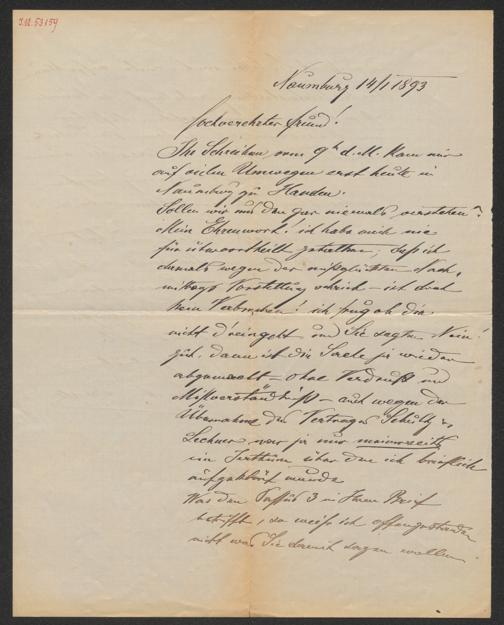 I.N. 53159
Naumburg 14/1 1893
Hochverehrter Freund!
Ihr Schreiben vom 9t d. M. kam mir
auf vielen Umwegen erst heute in
Naumburg zu Handen.
Sollen wir uns denn gar niemals verstehen?
Mein Ehrenwort! ich habe mich nie
für übervortheilt gehalten, daß ich
damals wegen der mißglückten Nach-
mittags Vorstellung schrieb – ist doch
kein Verbrechen! ich frug ob die
nicht d'reingeht und Sie sagten Nein!
gut, dann ist die Sache ja wieder
abgemacht – ohne Verdruß und
Mißverständniß – auch wegen der
Übernahme des Vertrages Schulz &
Lechner war ja nur meinerseits
ein Irrthum über den ich brieflich
aufgeklärt wurde
Was den Passus 3 in Ihrem Brief
betrifft, so weiß ich offengestanden
nicht was Sie damit sagen wollen